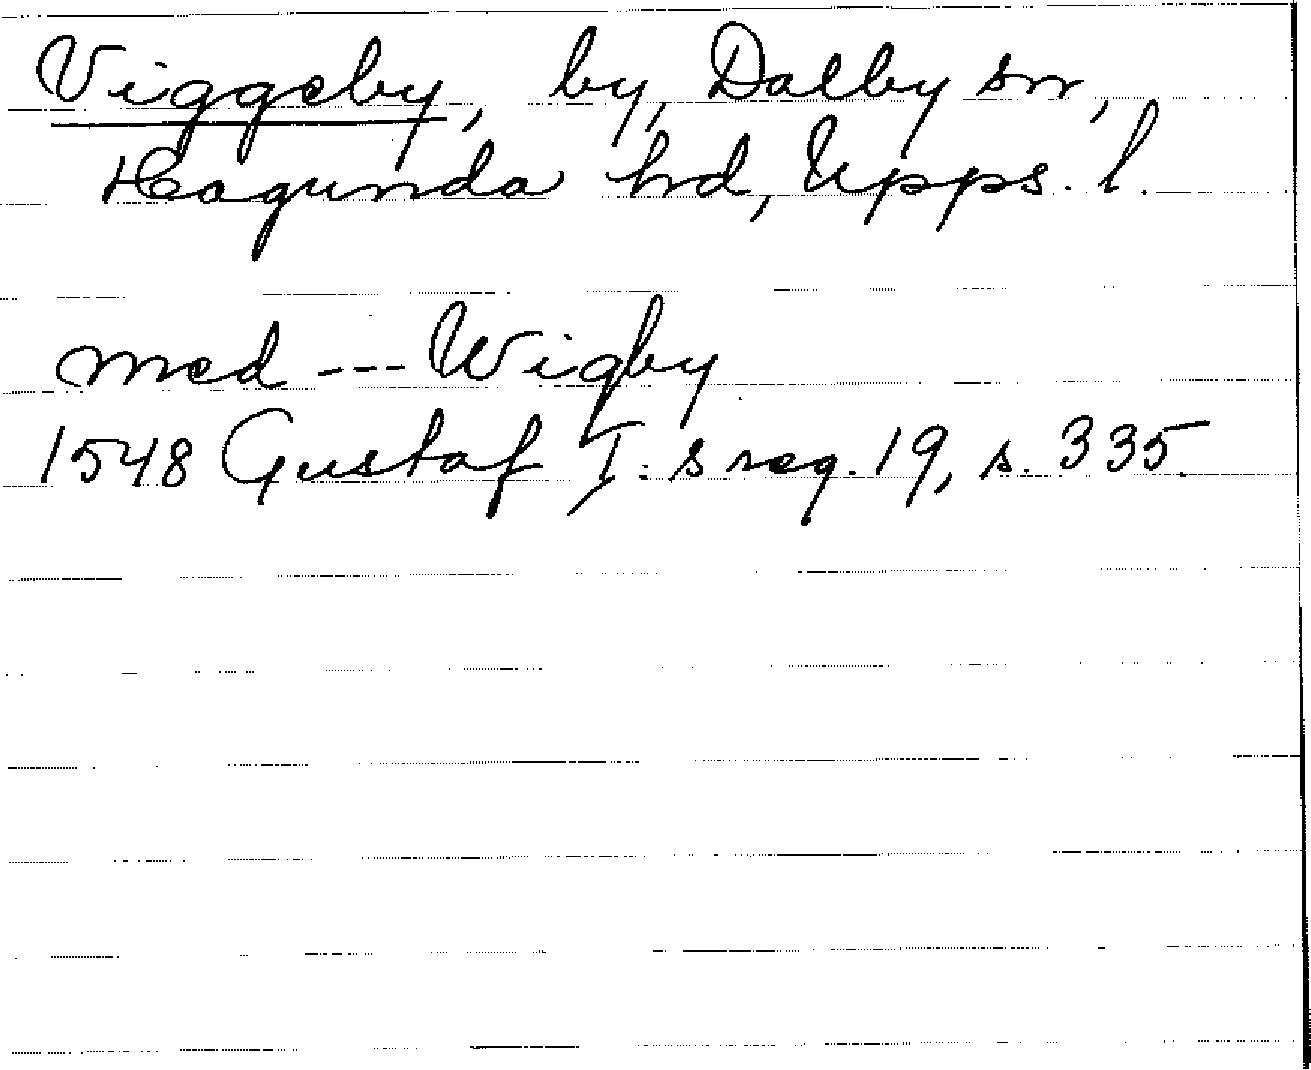 Viggeby, by, Dalby sn,
Hagunda hd, Upps. l.
med --- Wigby
1548 Gustaf I:s reg. 19, s. 335.